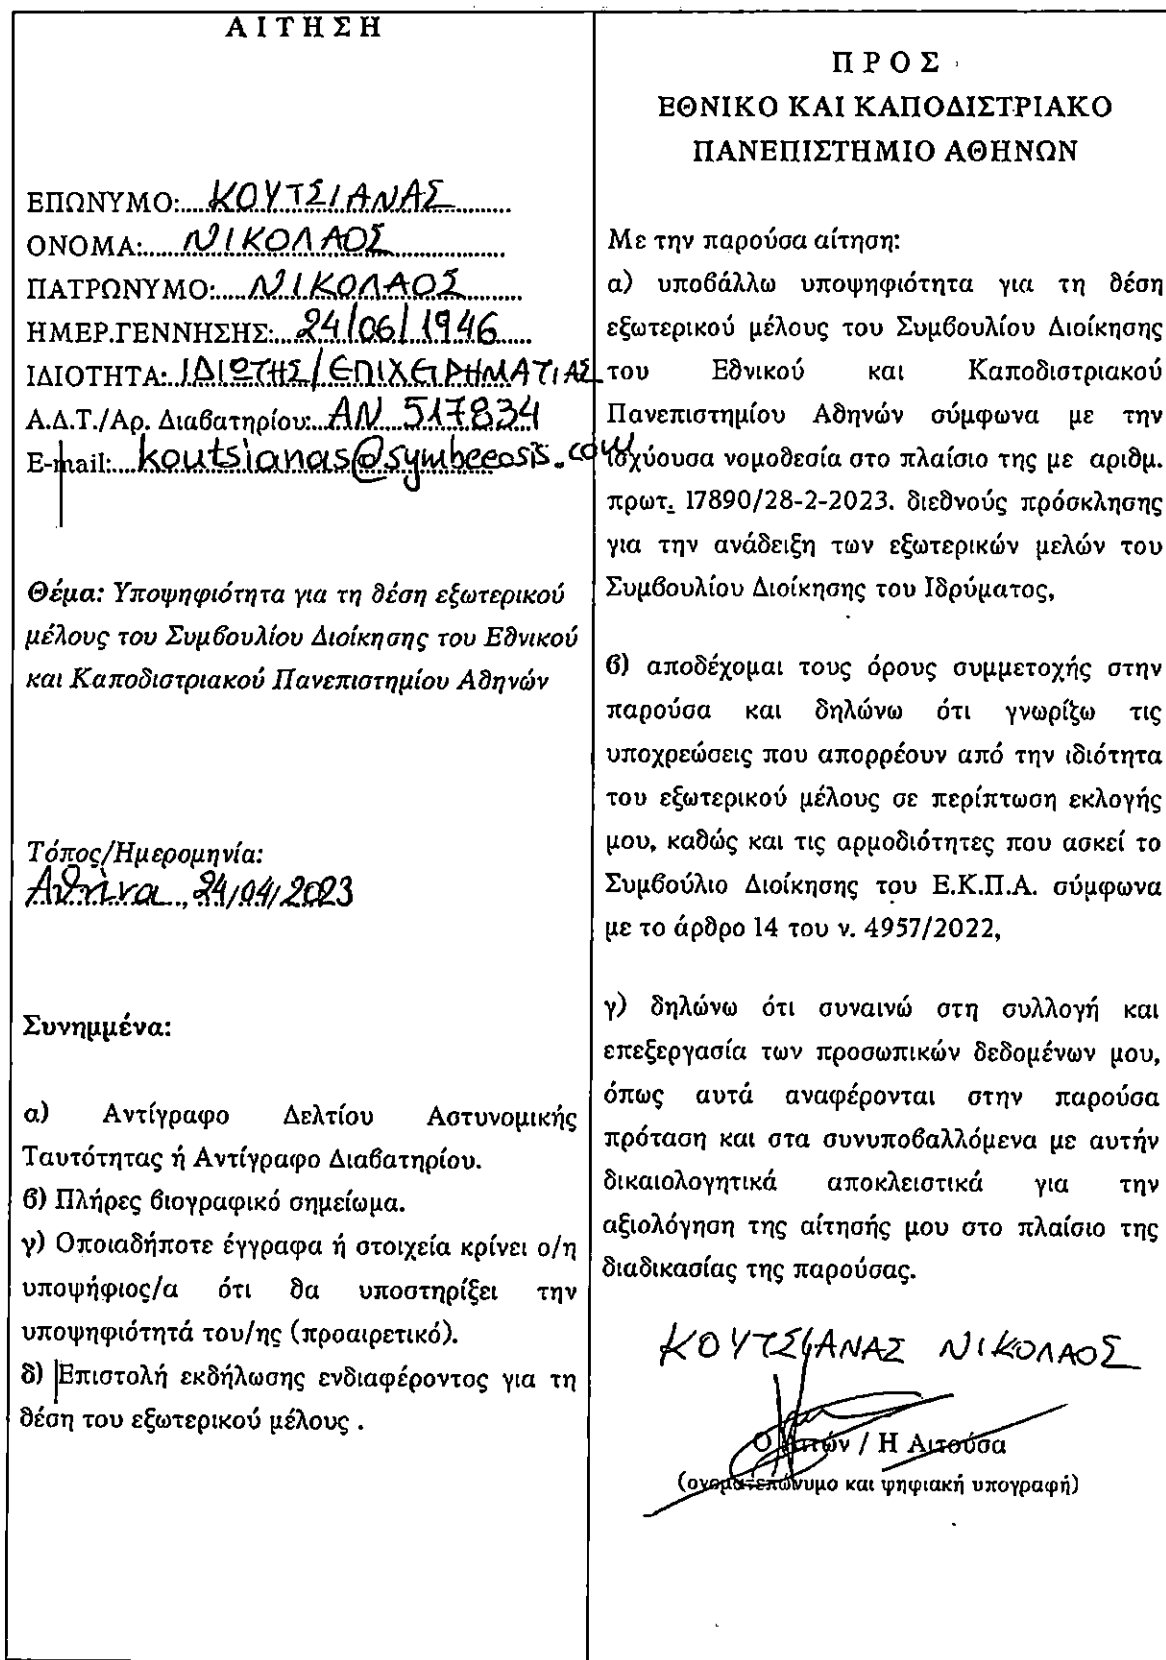 ΑΙΤΗΣΗ
ΕΠΩΝΥΜΟ:....ΚΟΥΤΣΙΑΝΑΣ........
ΟΝΟΜΑ:......ΝΙΚΟΛΑΟΣ....................
ΠΑΤΡΩΝΥΜΟ:....ΝΙΚΟΛΑΟΣ.........
ΗΜΕΡ.ΓΕΝΝΗΣΗΣ:..24/06/1946.....
ΙΔΙΟΤΗΤΑ:..ΙΔΙΩΤΗΣ/ΕΠΙΧΕΙΡΗΜΑΤΙΑΣ
Α.Δ.Τ./Αρ. Διαβατηρίου:..ΑΝ 517834
E-mail:...koutsianas@symbeeosis.com
Θέμα: Υποψηφιότητα για τη θέση εξωτερικού
μέλους του Συμβουλίου Διοίκησης του Εθνικού
και Καποδιστριακού Πανεπιστημίου Αθηνών
Τόπος/Ημερομηνία:
Αθήνα, 24/04/2023
Συνημμένα:
α) Αντίγραφο Δελτίου Αστυνομικής
Ταυτότητας ή Αντίγραφο Διαβατηρίου.
β) Πλήρες βιογραφικό σημείωμα.
γ) Οποιαδήποτε έγγραφα ή στοιχεία κρίνει ο/η
υποψήφιος/α ότι θα υποστηρίξει την
υποψηφιότητά του/ης (προαιρετικό).
δ) Επιστολή εκδήλωσης ενδιαφέροντος για τη
θέση του εξωτερικού μέλους .
ΠΡΟΣ
ΕΘΝΙΚΟ ΚΑΙ ΚΑΠΟΔΙΣΤΡΙΑΚΟ
ΠΑΝΕΠΙΣΤΗΜΙΟ ΑΘΗΝΩΝ
Με την παρούσα αίτηση:
α) υποβάλλω υποψηφιότητα για τη θέση
εξωτερικού μέλους του Συμβουλίου Διοίκησης
του Εθνικού και Καποδιστριακού
Πανεπιστημίου Αθηνών σύμφωνα με την
ισχύουσα νομοθεσία στο πλαίσιο της με αριθμ.
πρωτ. 17890/28-2-2023. διεθνούς πρόσκλησης
για την ανάδειξη των εξωτερικών μελών του
Συμβουλίου Διοίκησης του Ιδρύματος,
β) αποδέχομαι τους όρους συμμετοχής στην
παρούσα και δηλώνω ότι γνωρίζω τις
υποχρεώσεις που απορρέουν από την ιδιότητα
του εξωτερικού μέλους σε περίπτωση εκλογής
μου, καθώς και τις αρμοδιότητες που ασκεί το
Συμβούλιο Διοίκησης του Ε.Κ.Π.Α. σύμφωνα
με το άρθρο 14 του ν. 4957/2022,
γ) δηλώνω ότι συναινώ στη συλλογή και
επεξεργασία των προσωπικών δεδομένων μου,
όπως αυτά αναφέρονται στην παρούσα
πρόταση και στα συνυποβαλλόμενα με αυτήν
δικαιολογητικά αποκλειστικά για την
αξιολόγηση της αίτησής μου στο πλαίσιο της
διαδικασίας της παρούσας.
ΚΟΥΤΣΙΑΝΑΣ ΝΙΚΟΛΑΟΣ
Ο Αιτών / Η Αιτούσα
(ονοματεπώνυμο και ψηφιακή υπογραφή)